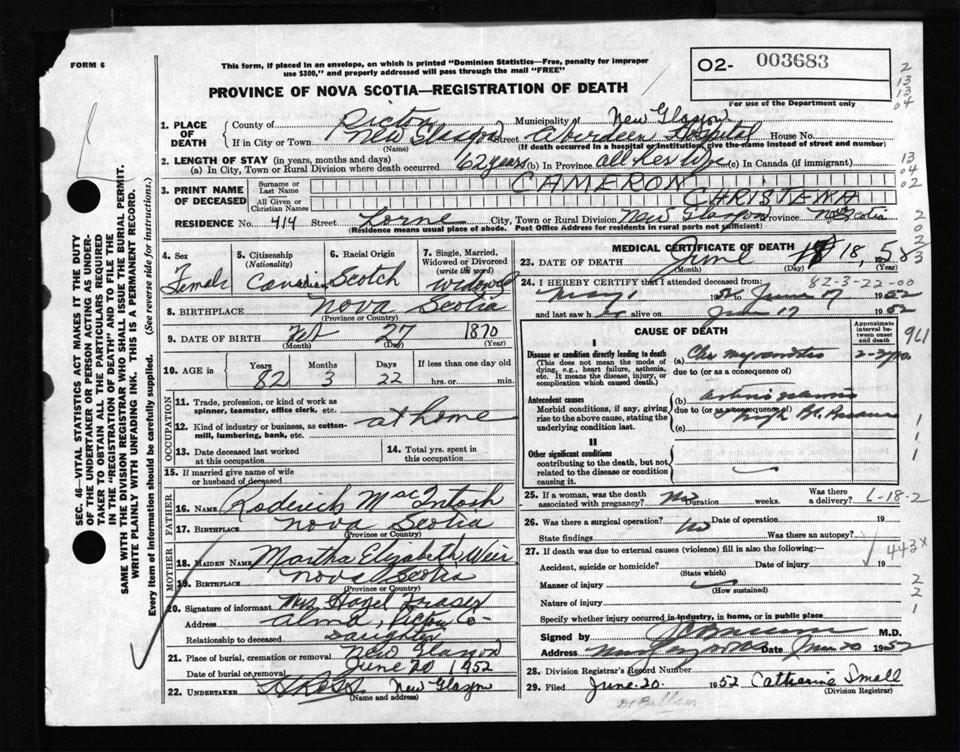 FORM 6
This form, if placed in an envelope, on which is printed "Dominion Statistics—Free, penalty for improper
use $300," and properly addressed will pass through the mail "FREE"
O2- 003683
For use of the Department only
PROVINCE OF NOVA SCOTIA—REGISTRATION OF DEATH
2
13
13
04
1. PLACE OF DEATH
County of Pictou Municipality of New Glasgow
If in City or Town New Glasgow Street Aberdeen Hospital House No.
(Name) (If death occurred in a hospital or institution, give the name instead of street and number)
2. LENGTH OF STAY (in years, months and days)
(a) In City, Town or Rural Division where death occurred 62 years (b) In Province all her life (c) In Canada (if immigrant)
13
04
02
3. PRINT NAME OF DECEASED
Surname or Last Name CAMERON
All Given or Christian Names CHRISTENA
RESIDENCE No. 414 Street Lorne City, Town or Rural Division New Glasgow Province N. Scotia
(Residence means usual place of abode. Post Office Address for residents in rural parts not sufficient)
2
0
2
83
4. Sex
Female
5. Citizenship
(Nationality)
Canadian
6. Racial Origin
Scotch
7. Single, Married,
Widowed or Divorced
(write the word)
Widowed
8. BIRTHPLACE Nova Scotia
(Province or Country)
9. DATE OF BIRTH 27 1870
(Month) (Day) (Year)
10. AGE in
Years Months Days
82 3 22
If less than one day old
hrs. or min.
OCCUPATION
11. Trade, profession, or kind of work as
spinner, teamster, office clerk, etc.
at home
12. Kind of industry or business, as cotton-
mill, lumbering, bank, etc.
13. Date deceased last worked
at this occupation
14. Total yrs. spent in
this occupation
15. If married give name of wife
or husband of deceased
FATHER
16. Name Roderick MacIntosh
17. Birthplace Nova Scotia
(Province or Country)
MOTHER
18. MAIDEN NAME Martha Elizabeth Weir
19. Birthplace Nova Scotia
(Province or Country)
20. Signature of informant Mrs Hazel Fraser
Address Alma, Pictou Co-
Relationship to deceased Daughter
21. Place of burial, cremation or removal New Glasgow
Date of burial or removal June 20 1952
22. UNDERTAKER New Glasgow
(Name and address)
MEDICAL CERTIFICATE OF DEATH
23. DATE OF DEATH June 18, 5
(Month) (Day) (Year)
24. I HEREBY CERTIFY that I attended deceased from:
82-3-22-00
May 1 to June 17 1952
and last saw h alive on June 17 1952
CAUSE OF DEATH
Approximate
interval be-
tween onset
and death
961
I
Disease or condition directly leading to death
(This does not mean the mode of
dying, e.g., heart failure, asthenia,
etc. It means the disease, injury, or
complication which caused death.)
(a) Chr myocarditis
due to (or as a consequence of)
Antecedent causes
Morbid conditions, if any, giving
rise to the above cause, stating the
underlying condition last.
(b)
due to (or as consequence of)
High Bl. Pressure
(c)
II
Other significant conditions
contributing to the death, but not
related to the disease or condition
causing it.
1
1
1
25. If a woman, was the death
associated with pregnancy? No Duration weeks. Was there
a delivery?
6-18-2
26. Was there a surgical operation? No Date of operation 19
State findings Was there an autopsy?
27. If death was due to external causes (violence) fill in also the following:—
443x
Accident, suicide or homicide? Date of injury 19
(State which)
Manner of injury
(How sustained)
Nature of injury
2
2
1
Specify whether injury occurred in industry, in home, or in public place
Signed by M.D.
Address Date June 20 1952
28. Division Registrar's Record Number
29. Filed June 20. 1952 Catherine Small
(Division Registrar)
SEC. 46—VITAL STATISTICS ACT MAKES IT THE DUTY
OF THE UNDERTAKER OR PERSON ACTING AS UNDER-
TAKER TO OBTAIN ALL THE PARTICULARS REQUIRED
IN THE "REGISTRATION OF DEATH" AND TO FILE THE
SAME WITH THE DIVISION REGISTRAR WHO SHALL ISSUE THE BURIAL PERMIT.
WRITE PLAINLY WITH UNFADING INK. THIS IS A PERMANENT RECORD.
Every item of information should be carefully supplied. (See reverse side for instructions.)